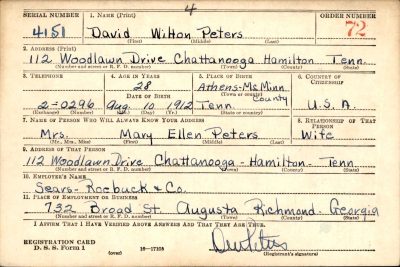 4
SERIAL NUMBER 1. NAME (Print) ORDER NUMBER
4151 David Wilton Peters 72
(First) (Middle) (Last)
2. ADDRESS (Print)
112 Woodlawn Drive Chattanooga Hamilton Tenn.
(Number and street or R. F. D. number) (Town) (County) (State)
3. TELEPHONE 4. AGE IN YEARS 5. PLACE OF BIRTH 6. COUNTRY OF CITIZENSHIP
28 Athens-McMinn
DATE OF BIRTH (Town or county) County
2-0296 Aug. 10 1912 Tenn. U.S.A.
(Exchange) (Number) (Mo.) (Day) (Yr.) (State or country)
7. NAME OF PERSON WHO WILL ALWAYS KNOW YOUR ADDRESS 8. RELATIONSHIP OF THAT PERSON
Mrs. Mary Ellen Peters Wife
(Mr., Mrs., Miss) (First) (Middle) (Last)
9. ADDRESS OF THAT PERSON
112 Woodlawn Drive Chattanooga-Hamilton-Tenn
(Number and street or R. F. D. number) (Town) (County) (State)
10. EMPLOYER'S NAME
Sears-Roebuck & Co.
11. PLACE OF EMPLOYMENT OR BUSINESS
732 Broad St. Augusta Richmond-Georgia
(Number and street or R. F. D. number) (Town) (County) (State)
I AFFIRM THAT I HAVE VERIFIED ABOVE ANSWERS AND THAT THEY ARE TRUE.
REGISTRATION CARD
D. S. S. Form 1 (over) 16-17105 (Registrant's signature)